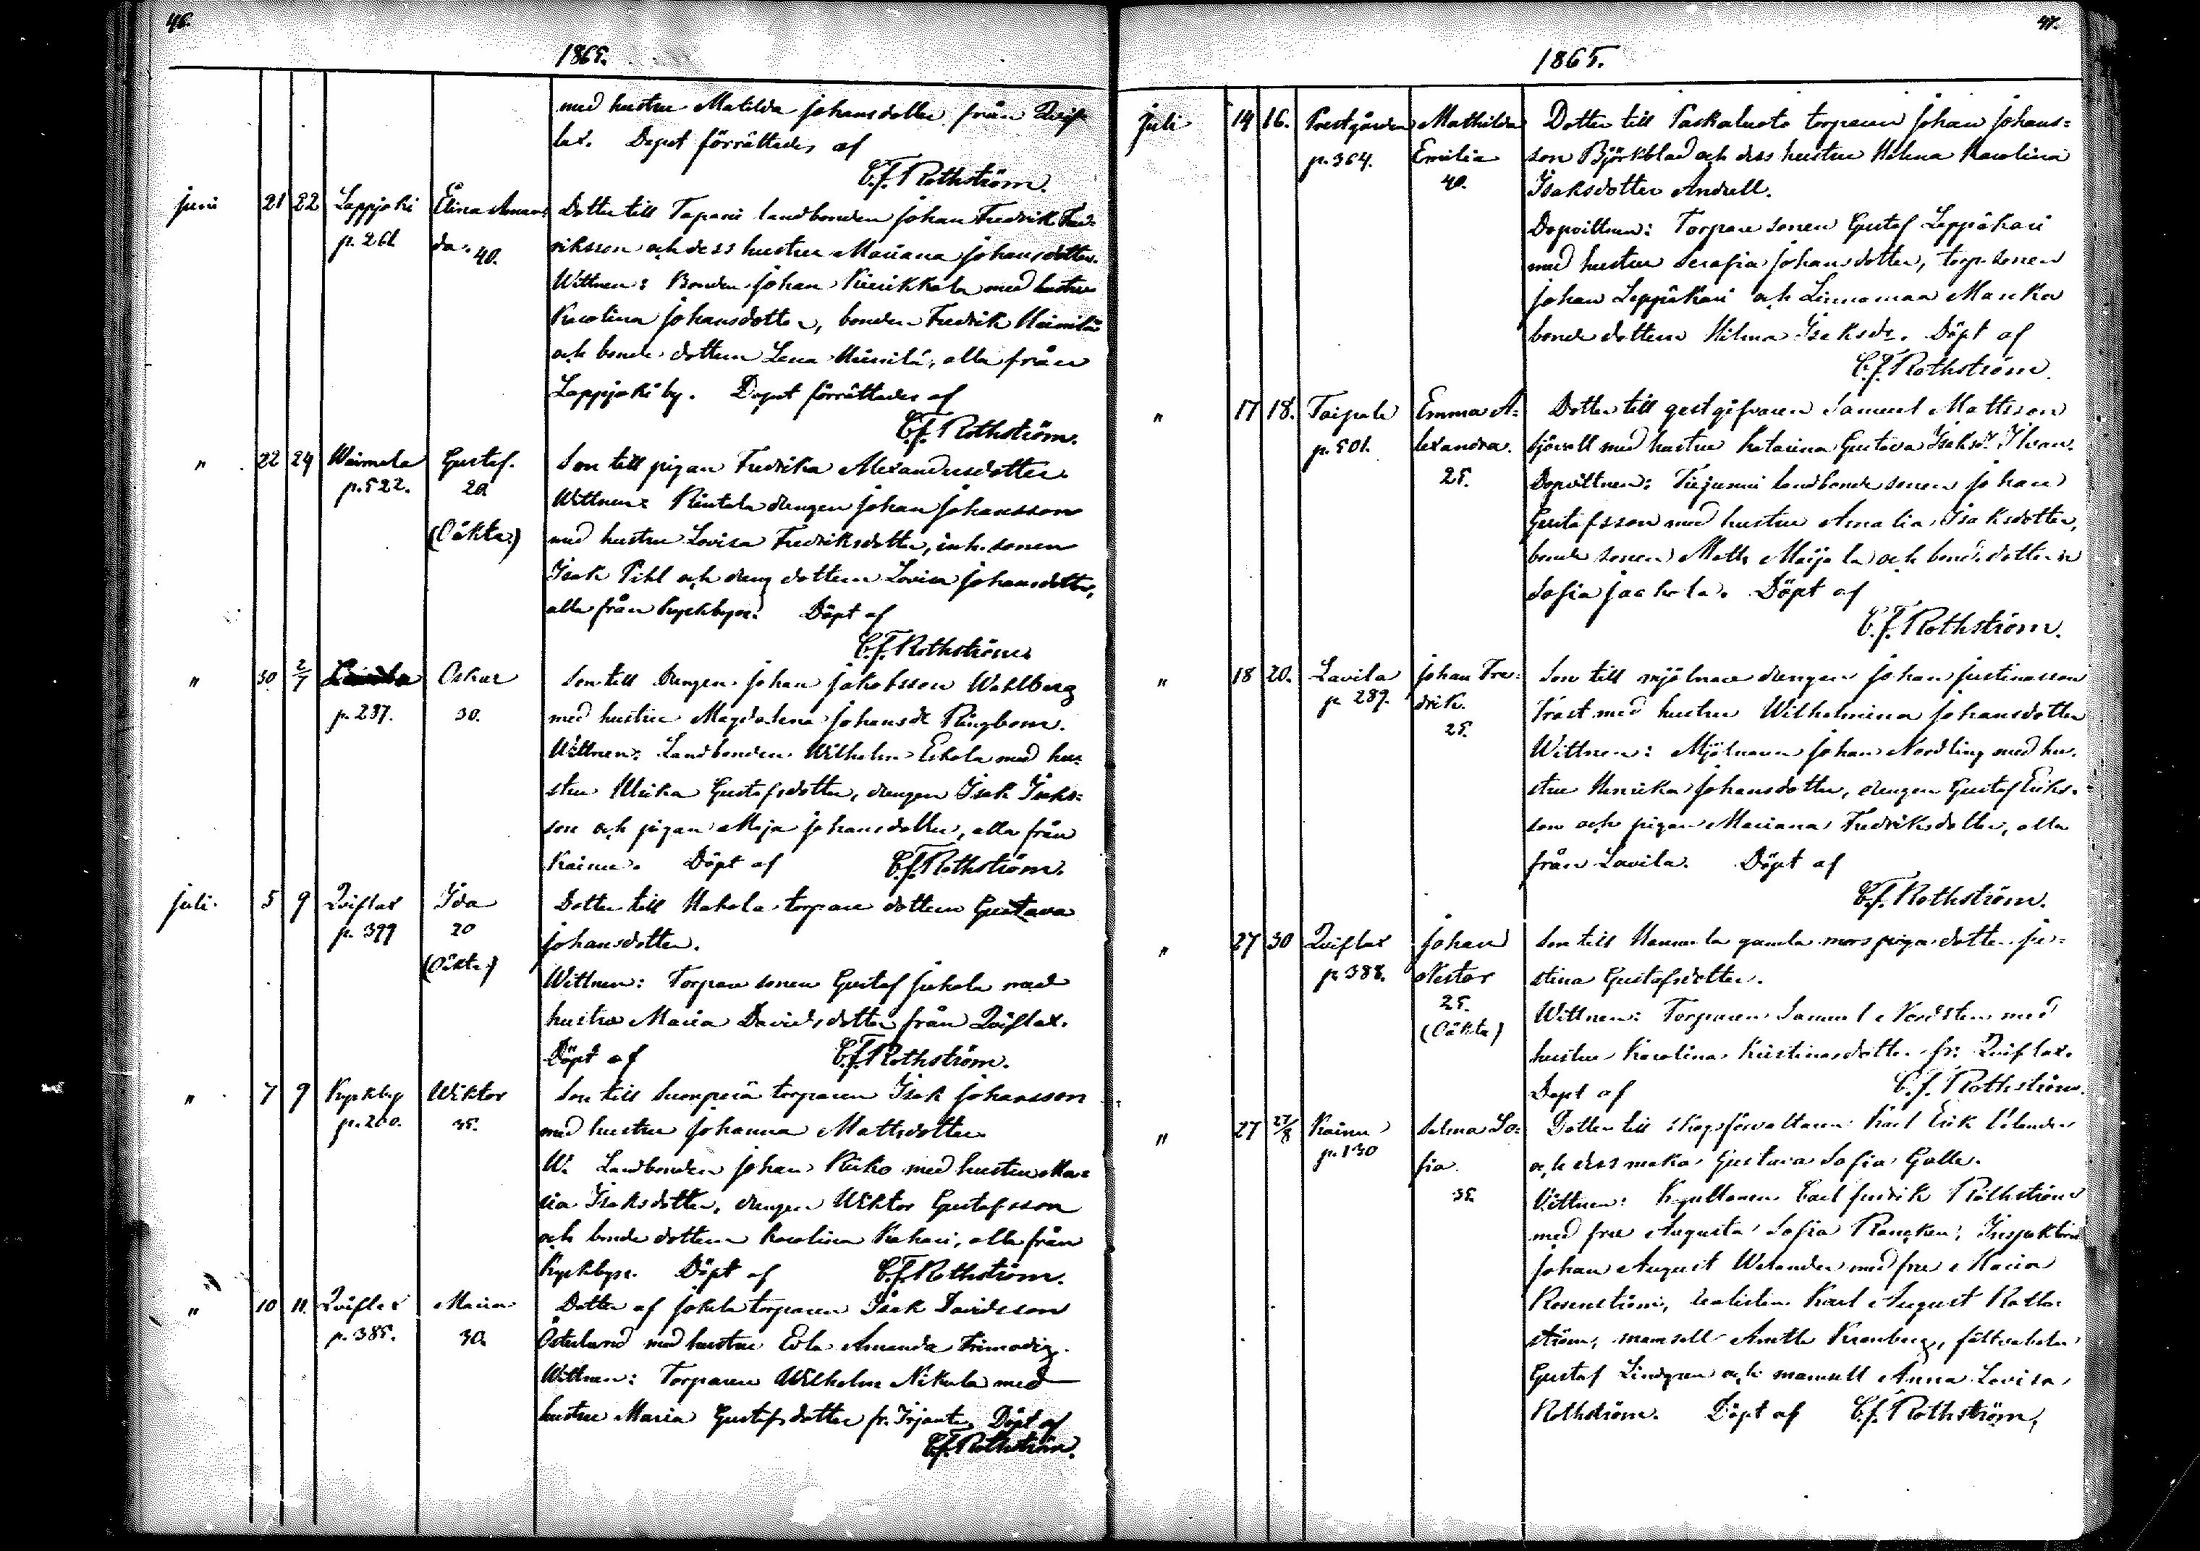 46.
1865.
med hustru Matilda Johansdotter från Quif-
lax. Dopet förrättades af
C.f. Rothström.
Juni 21 22 Lappjoki Elina Aman- Dotter till Tapani landbonden Johan Fredrik Fred-
p. 261 da. 40. riksson och dess hustru Mariana Johansdotter.
Wittnen: Bonden Johan Kierikkala med hustru
Karolina Johansdotter, bonden Fredrik
och bonde dottern Lena alla från
Lappjoki by. Dopet förrättades af
C.f. Rothström.
" 22 24 p. 522. Gustaf. Son till pigan Fredrika Alexandersdotter
20 Wittnen: Rintala drengen Johan Johansson
(Oäkta) med hustru Lovisa Fredriksdotter, inh. sonen
Isak Pihl och dreng dottern Lovisa Johansdotter,
alla från Kyrkbyn. Döpt af
C.f. Rothström.
" 30 2/7 Oskar Son till Drengen Johan Jakobsson Wahlberg
p. 237. 30. med hustru Magdalena Johansdr Ringbom.
Wittnen: Landbonden Wilhelm Eskola med hu-
stru Ulrika Gustafsdotter, drengen Isak Isaks-
son och pigan Maja Johansdotter, alla från
Kainu. Döpt af C.f. Rothström.
Juli. 5 9 Quiflax Ida Dotter till Hakola torpare dottern Gustava
p. 399 20 Johansdotter.
(Oäkta) Wittnen: Torpare sonen Gustaf Jakola med
hustru Maria Davidsdotter från Quiflax.
Döpt af C.f. Rothström.
" 7 9 Kyrkby Wiktor Son till Suonperä torparen Isak Johansson
p. 200. 35. med hustru Johanna Mattsdotter
W. Landbonden Johan med hustru Ma-
ria Isaksdotter, drengen Wiktor Gustafsson
och bonde dottern Karolina alla från
Kyrkbyn. Döpt af C.f. Rothström.
" 10 11. Quiflax Maria Dotter af Jokela torparen Isak Davidsson
p. 385. 30. Österlund med hustru Eva Amanda Frimodig.
Wittnen: Torparen Wilhelm Nikula med
hustru Maria Gustafsdotter fr. Irjante Döpt af
C.f. Rothström.
47.
1865.
Juli 14 16. Prestgården Mathilda Dotter till Paskaluoto torparen Johan Johans-
p. 364. Emilia son Björkblad och dess hustru Helena Karolina
40. Isaksdotter Andell.
Dopvittnen: Torpare sonen Gustaf Leppäkari
med hustru Serafia Johansdotter, torp. sonen
Johan Leppäkari och Linnamaa
bonde dottern Hilma Isaksdr. Döpt af
C.f. Rothström.
" 17 18. Taipale Emma A- Dotter till gestgifvaren Samuel Mattsson
p. 501. lexandra. Sjövall med hustru Katarina Gustava Isaksdr
25. Dopvittnen: landbonde sonen Johan
Gustafsson med hustru Amalia Isaksdotter,
bonde sonen Matts Maijala och bonde dottern
Sofia Jaakola. Döpt af
C.f. Rothström.
" 18 20. Lavila Johan Fre- Son till mjölnare drengen Johan Justinasson
p. 289. drik. Trast med hustru Wilhelmina Johansdotter
25. Wittnen: Mjölnaren Johan Nordling med hu-
stru Henrika Johansdotter, drengen Gustaf Eriks-
son och pigan Mariana Fredriksdotter, alla
från Lavila. Döpt af
C.f. Rothström.
" 27 30 Quiflax Johan Son till Hannula gamla mors piga dotter Ju-
p. 388. Nestor stina Gustafsdotter.
25. Wittnen: Torparen Samuel Nordsten med
(Oäkta) hustru Karolina Kristinasdotter fr. Quiflax.
Döpt af C.f. Rothström.
" 27 27/8 Kainu Selma So- Dotter till skogsförvaltaren Karl Erik
p. 130 fia. och dess maka Gustava Sofia Galle.
35. Vittnen: Kapellanen Carl Fredrik Rothström
med fru Augusta Sofia Rancken, Inspektoren
Johan August Welander med fru Maria
Rosenström, realisten Karl August Roth-
ström, mamsell Kronberg,
Gustaf Lindgren och mamsell Anna Lovisa
Rothström. Döpt af C.f. Rothström.